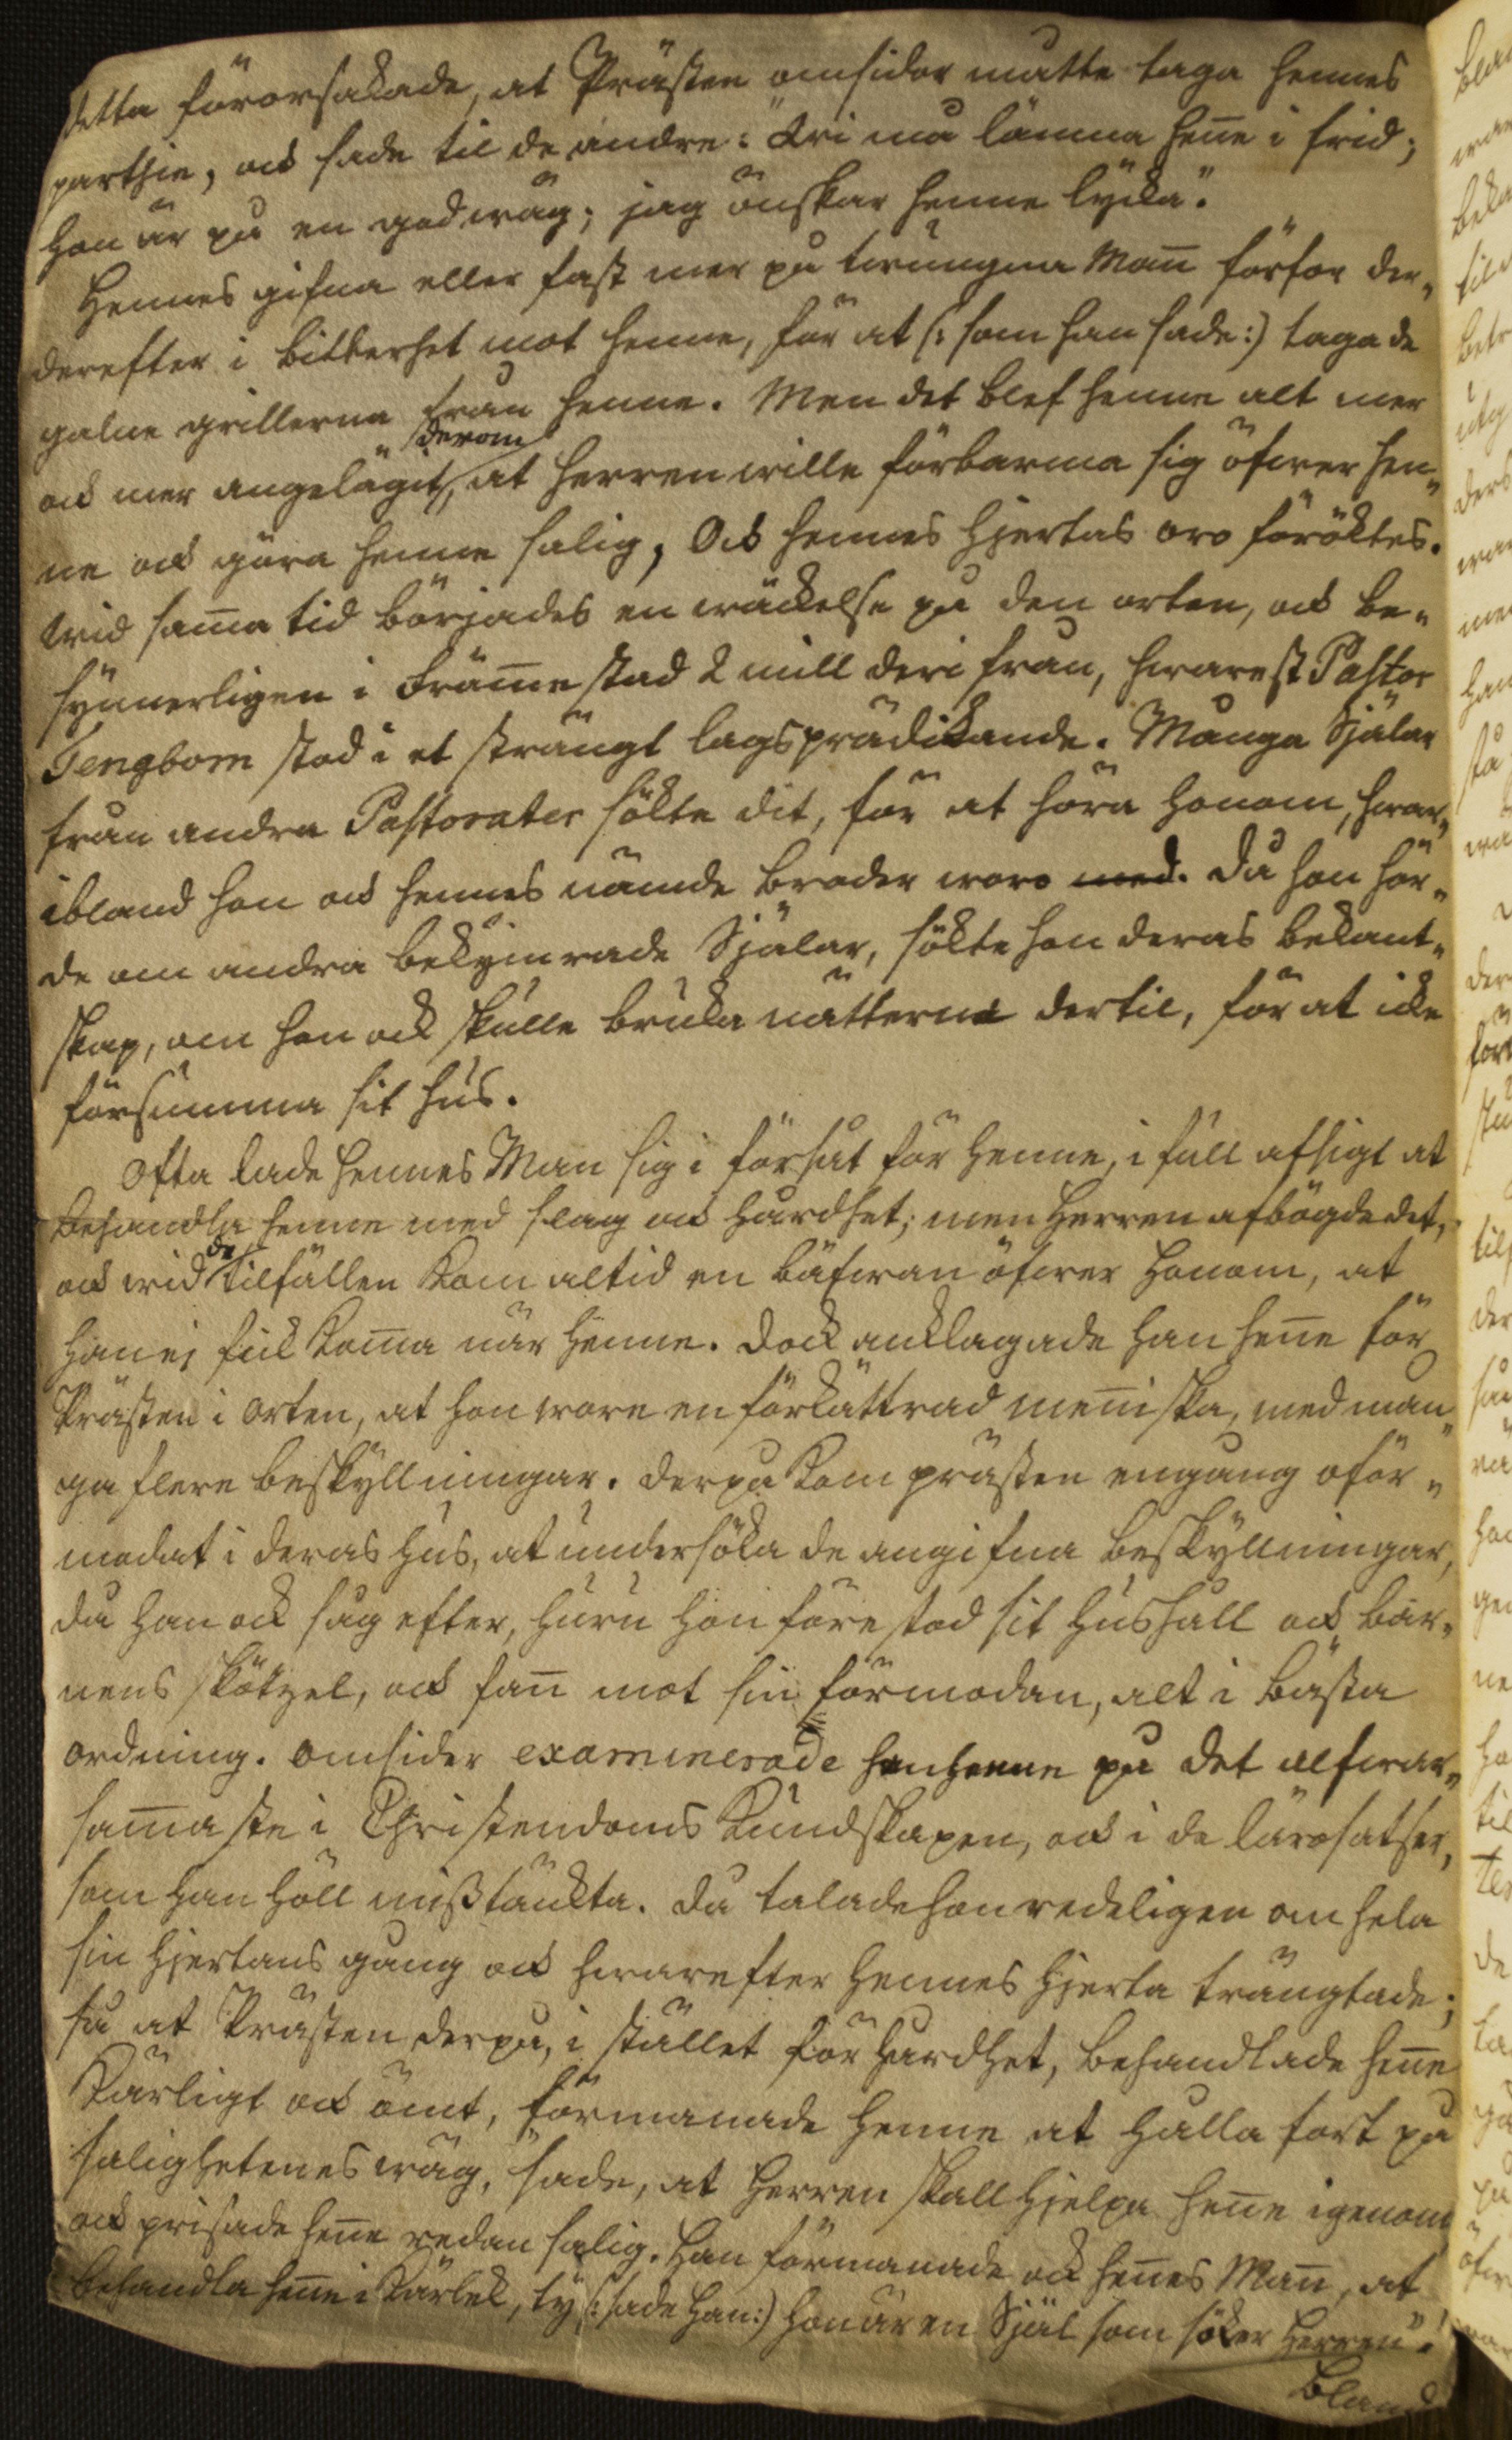 detta förorsakade, at Prästen omsider måtte taga hennes
parthie, och sade til de andre: "Wi må lämna heñe i frid;
hon är på en god wäg; jag önskar henne lycka".
Hennes gifna eller fast mer på twungna Mañ förfor der„
derefter i bitterhet mot henne, för at (: som han sade:) taga de
galna grillerna från henne. Men det blef henne alt mer
och mer angelägit, derom at Herren wille förbarma sig öfwer hen„
ne och göra henne salig, Och hennes hjertas oro föröktes.
Wid sam̄a tid börjades en wäckelse på den orten, och be„
synnerligen i Främ̄estad 2 mill deri från, hwarest Pastor
Tengbom stod i et strängt lagsprädikande. Många Själar
från andra Pastorater sökte dit, för at höra honom, hwar„
ibland hon och hennes nämde broder woro med. Då hon hör„
de om andra bekymrade Själar, sökte hon deras bekant„
skap, om hon ock skulle bruka nätterna dertil, för at icke
försumma sit hus.
Ofta lade hennes Man sig i försåt för henne, i full afsigt at
behandla henne med slag och hårdhet; men Herren afbögde det,
och wid de tilfällen kom altid en bäfwan öfwer honom, at
han ej fick kom̄a när henne. Dock anklagade han heñe för
Prästen i orten, at hon wore en förkättrad meñiska, med mån„
ga flere beskyllningar. Derpå kom prästen engång oför„
modat i deras hus, at undersöka de angifna beskyllningar,
då han ock såg efter, huru hon förestod sit hushåll och bar„
nens skötzel, och fañ mot sin förmodan, alt i bästa
ordning. Omsider examinerade han henne på det alfwar„
sam̄aste i Christendoms kundskapen, och i de lärosatser,
som han höll misstänkta. Då talade hon redeligen om hela
sin hjertans gång och hwarefter hennes hjerta trängtade;
så at Prästen derpå, i stället för hårdhet, behandlade heñe
kärligt och ömt, förmanade henne at hålla fort på
salighetenes wäg, sade, at Herren skall hjelpa heñe igenom
och prisade heñe redan salig. Han förmanade ock heñes Mañ, at
behandla heñe i kärlek, ty (: sade han:) hon är en Själ som söker Herren"!
Bland